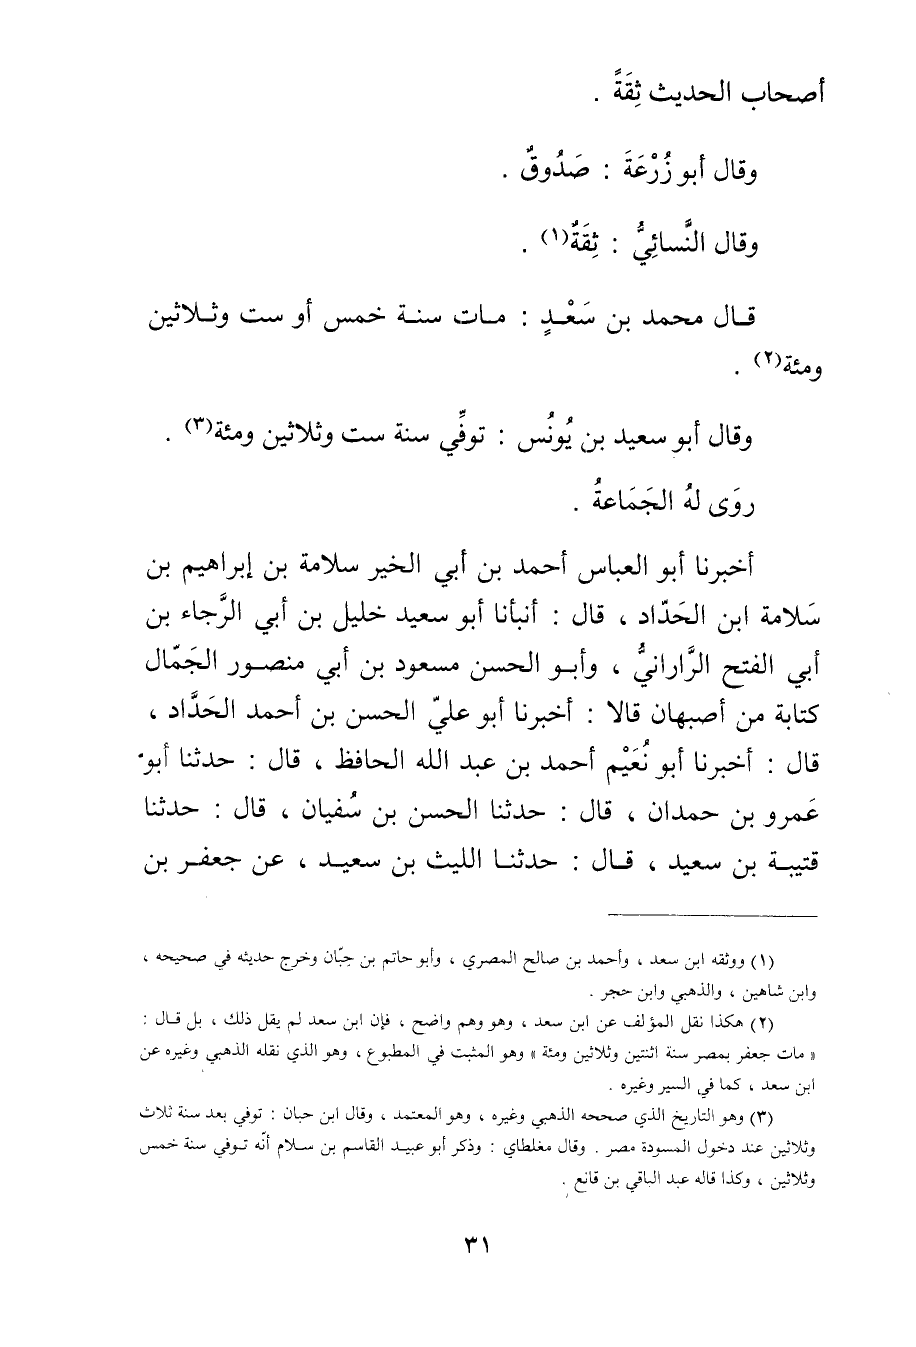 أصحاب الحديث ثِقَةً .
وقال أبو زُرْعَةَ : صَدُوقٌ .
وقال النَّسائِيُّ : ثِقَةٌ(١) .
قـال محمد بن سَعْـدٍ : مـات سنـة خمس أو ست وثـلاثين
ومئة(٢) .
وقال أبو سعيد بن يُونُس : توفِّي سنة ست وثلاثين ومئة(٣) .
روَى لهُ الجَمَاعةُ .
أخبرنا أبو العباس أحمد بن أبي الخير سلامة بن إبراهيم بن
سَلامة ابن الحَدّاد ، قال : أنبأنا أبو سعيد خليل بن أبي الرَّجاء بن
أبي الفتح الرَّارانيُّ ، وأبـو الحسن مسعود بن أبي منصـور الجَمّال
كتابة من أصبهان قالا : أخبرنا أبو عليّ الحسن بن أحمد الحَدَّاد ،
قال : أخبرنا أبو نُعَيْم أحمد بن عبد الله الحافظ ، قال : حدثنا أبو
عَمرو بن حمدان ، قال : حدثنا الحسن بن سُفيان ، قال : حدثنا
قتيبـة بن سعيد ، قـال : حدثنـا الليث بن سعيـد ، عن جعفـر بن
(١) ووثقه ابن سعد ، وأحمد بن صالح المصري ، وأبو حاتم بن حِبّان وخرج حديثه في صحيحه ،
وابن شاهين ، والذهبي وابن حجر .
(٢) هكذا نقل المؤلف عن ابن سعد ، وهو وهم واضح ، فإن ابن سعد لم يقل ذلك ، بل قـال :
« مات جعفر بمصر سنة اثنتين وثلاثين ومئة » وهو المثبت في المطبوع ، وهو الذي نقله الذهبي وغيره عن
ابن سعد ، كما في السير وغيره .
(٣) وهو التاريخ الذي صححه الذهبي وغيره ، وهو المعتمد ، وقال ابن حبان : توفي بعد سنة ثلاث
وثلاثين عند دخول المسودة مصر . وقال مغلطاي : وذكر أبو عبيـد القاسم بن سـلام أنّه تـوفي سنة خمس
وثلاثين ، وكذا قاله عبد الباقي بن قانع .
٣١